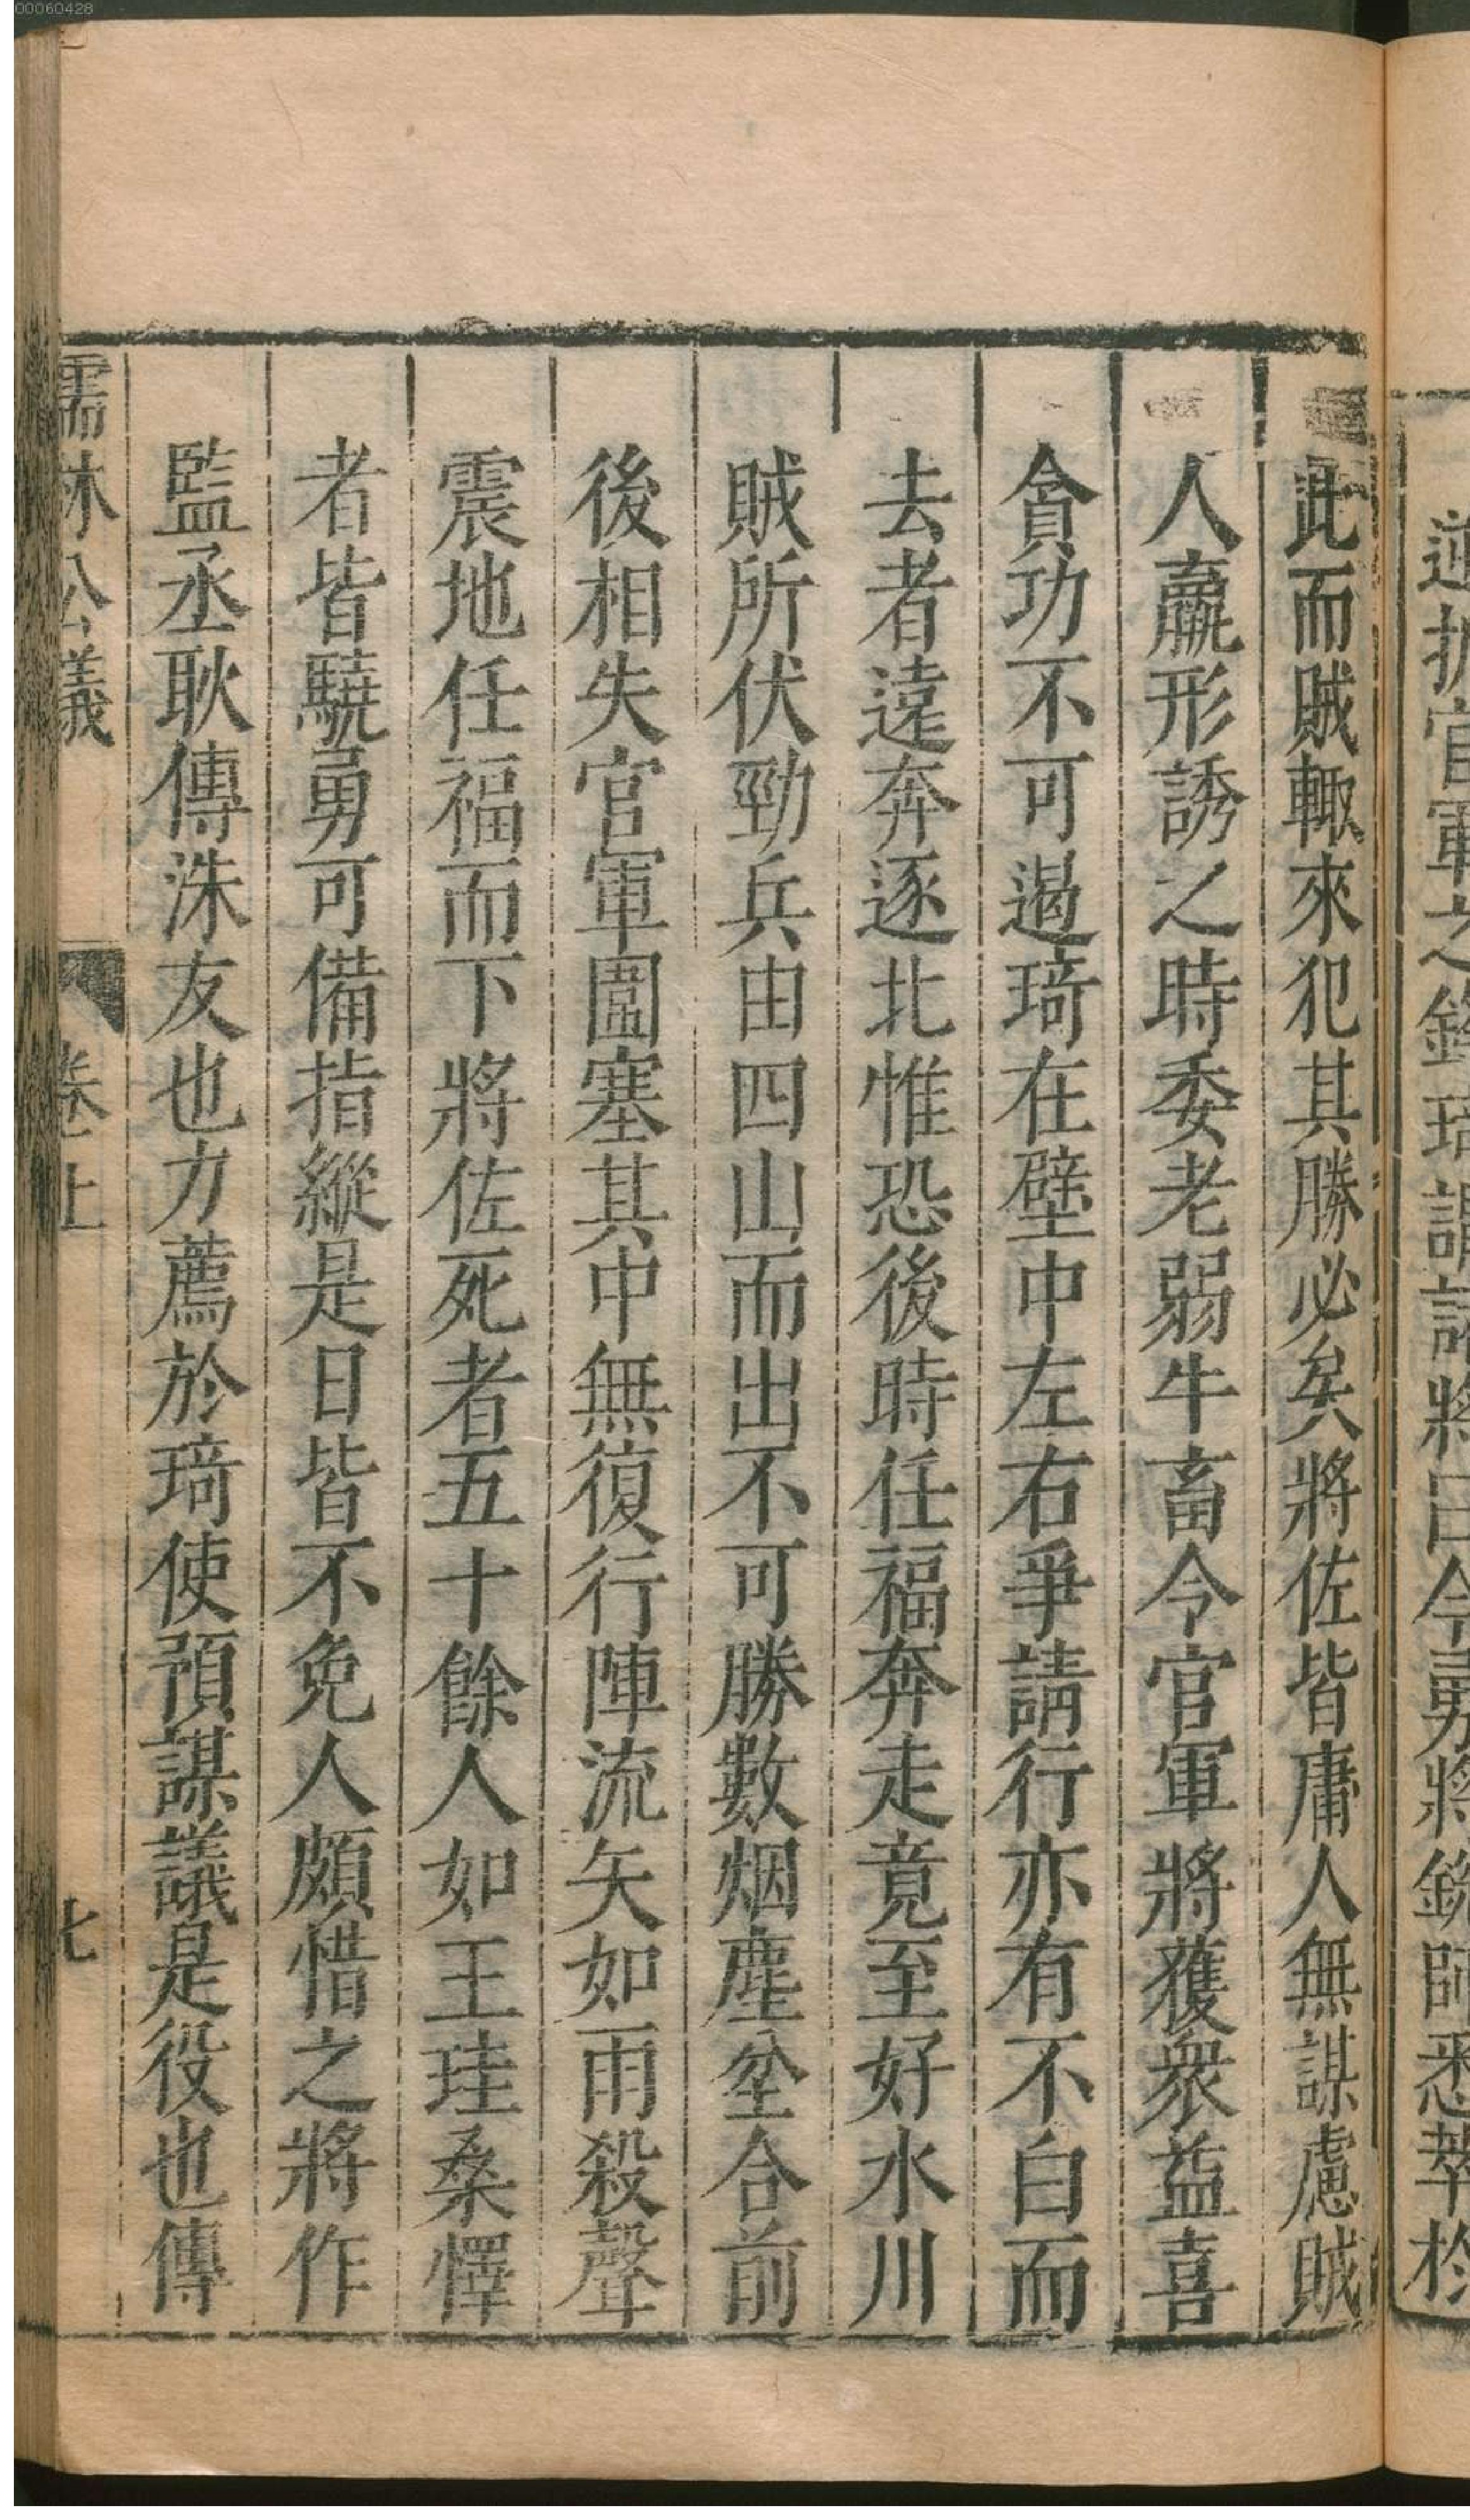 00060428
逆折官軍之銳琦謂諸將曰今勇將銳師悉萃於
此而賊輙來犯其勝必矣將佐皆庸人無謀慮賊
人羸形誘之時委老弱牛畜令官軍將獲衆益喜
貪功不可遏琦在壁中左右爭請行亦有不白而
去者遠奔逐北惟恐後時任福奔走竟至好水川
賊所伏勁兵由四山而出不可勝數烟塵坌合前
後相失官軍圍塞其中無復行陣流矢如雨殺聲
震地任福而下將佐死者五十餘人如王珪桑懌
者皆驍勇可備指縱是日皆不免人頗惜之將作
監丞耿傳洙友也力薦於琦使預謀議是役也傳
儒林公議 卷上